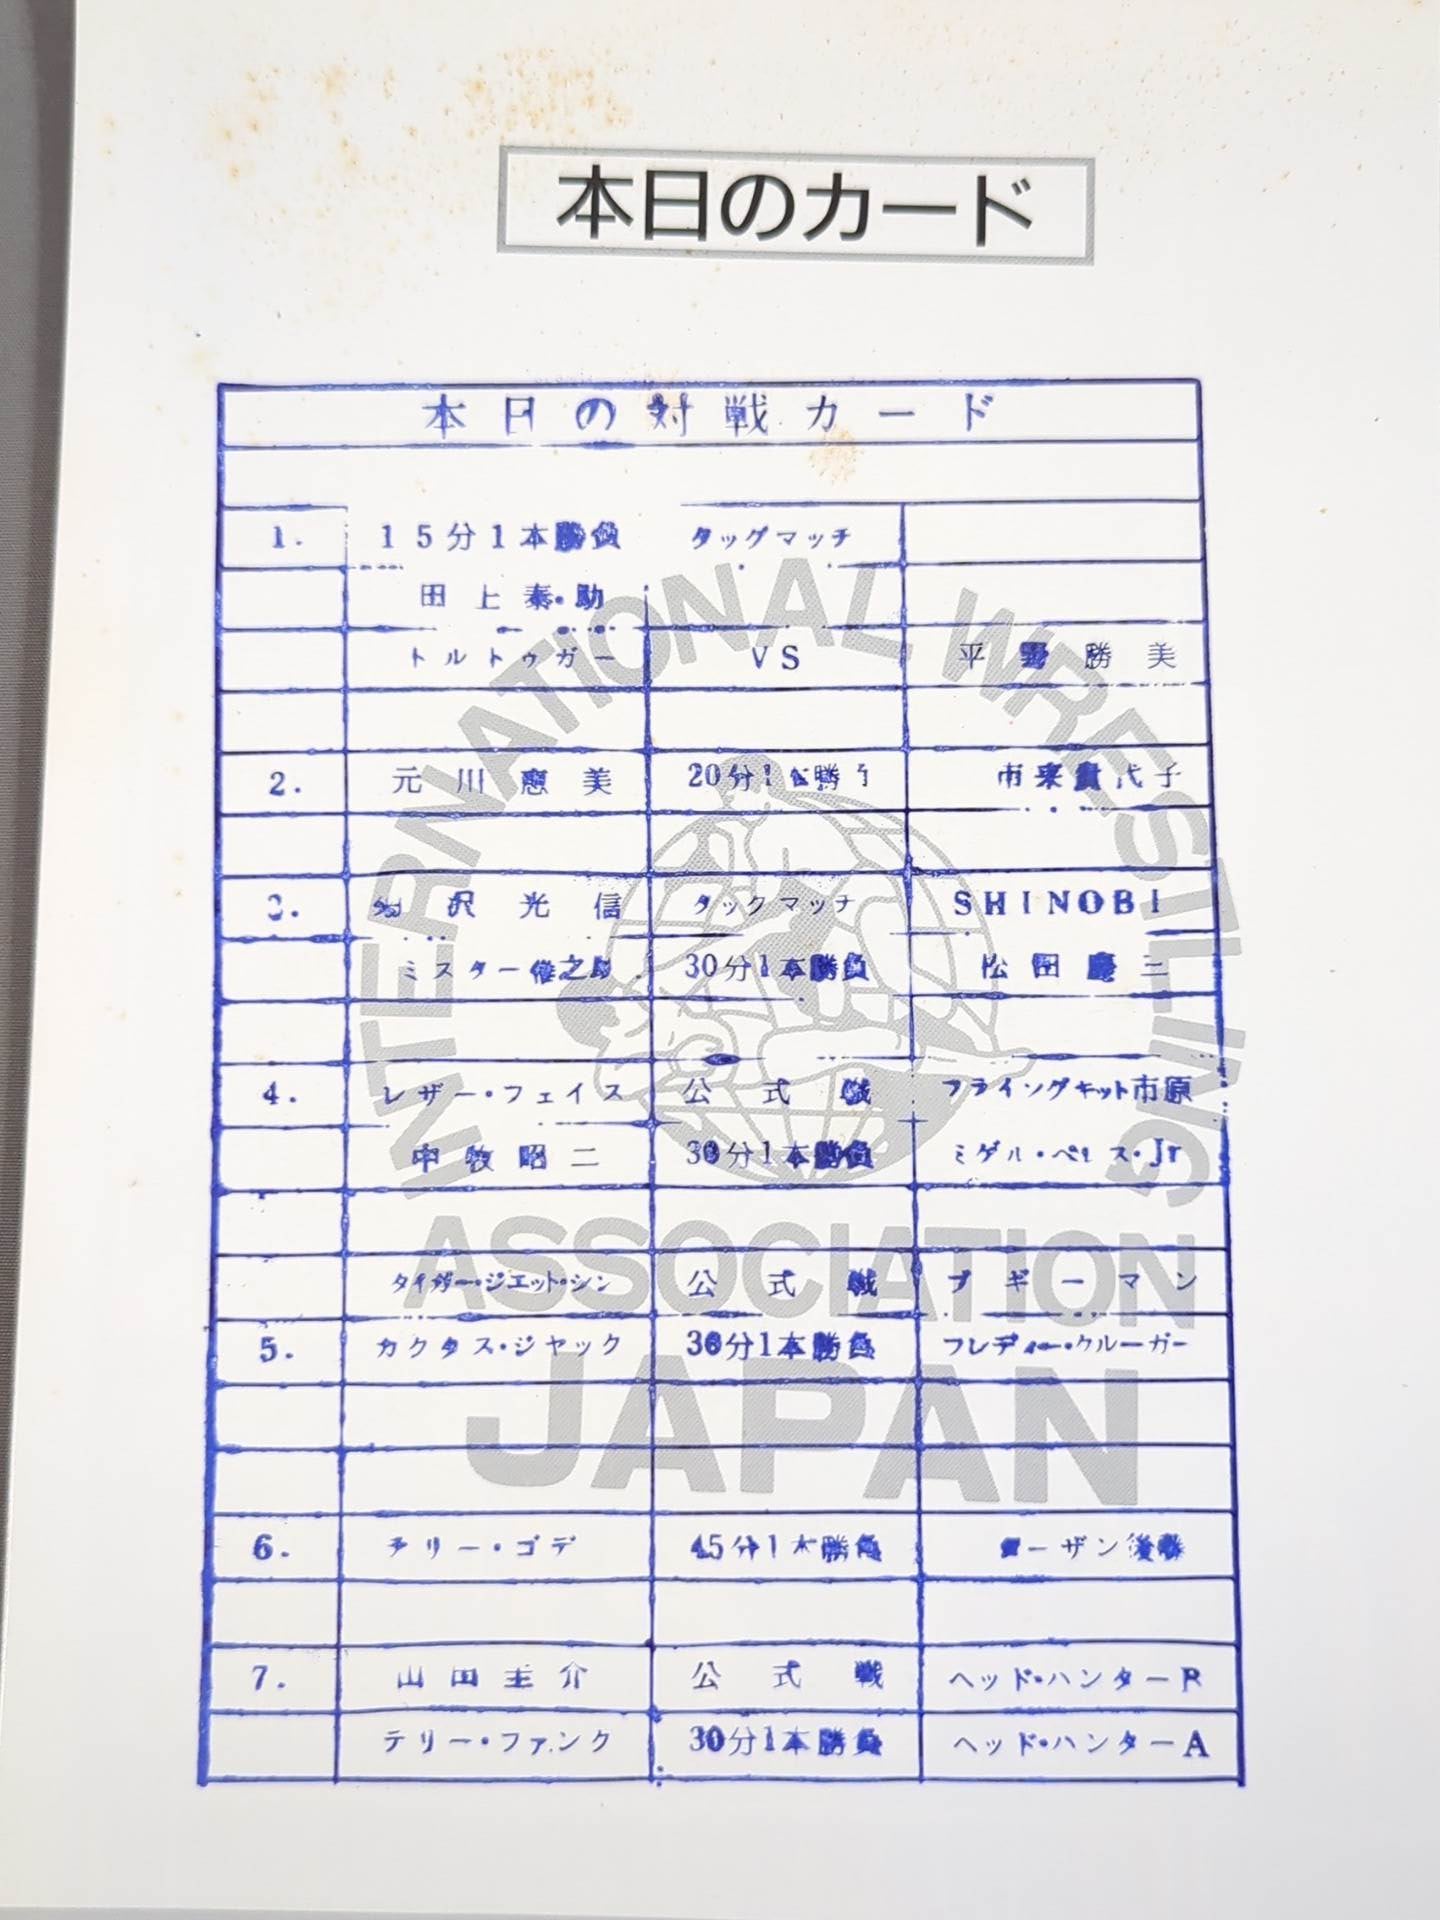 本日のカード
本日の対戦カード
1. 15分1本勝負 タッグマッチ
田上泰助
トルトゥガー VS 平野勝美
2. 元川恵美 20分1本勝 市来貴代子
3. 沢光信 タックマッチ SHINOBI
ミスター雁之助 30分1本勝負 松田慶三
4. レザー・フェイス 公式戦 フライングキット市原
中牧昭二 30分1本勝負 ミゲル・ペレス・Jr
タイガー・ジェット・シン 公式戦 ブギーマン
5. カクタス・ジャック 30分1本勝負 フレディー・クルーガー
6. テリー・ゴディ 45分1本勝負 ターザン後藤
7. 山田圭介 公式戦 ヘッド・ハンターB
テリー・ファンク 30分1本勝負 ヘッド・ハンターA
INTERNATIONAL WRESTLING
ASSOCIATION
JAPAN